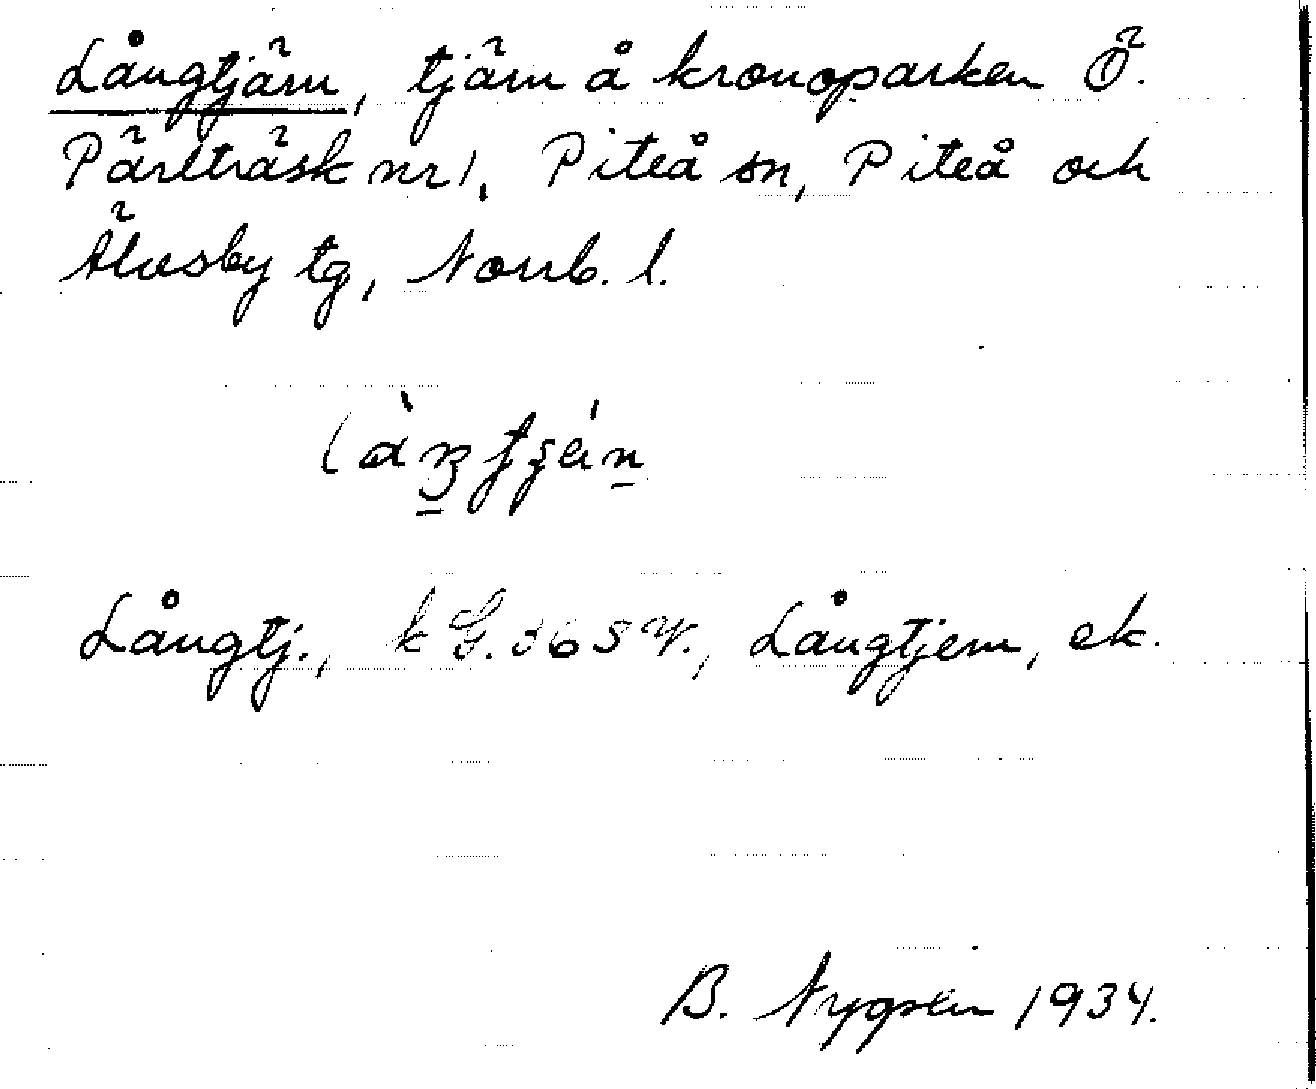 Långtjärn, tjärn å kronoparken Ö.
Pärlträsk nr 1, Piteå sn, Piteå och
Älvsby tg, Norrb. l.
Långtj., k G. 365 V., Långtjern, ek.
B. Nygren 1934.